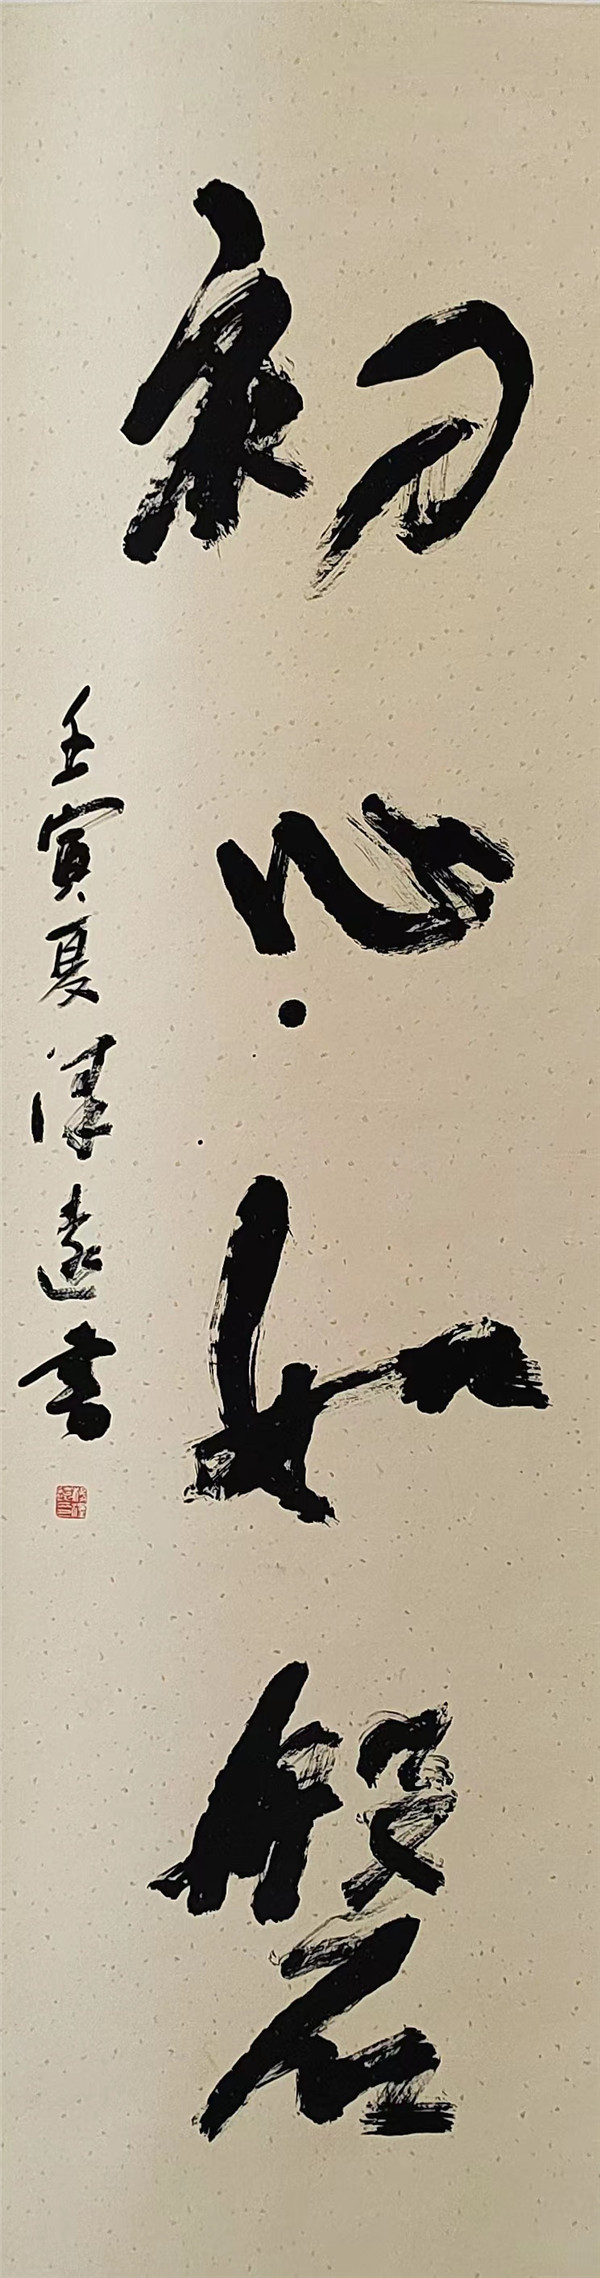 初心如磐
壬寅夏津遠書